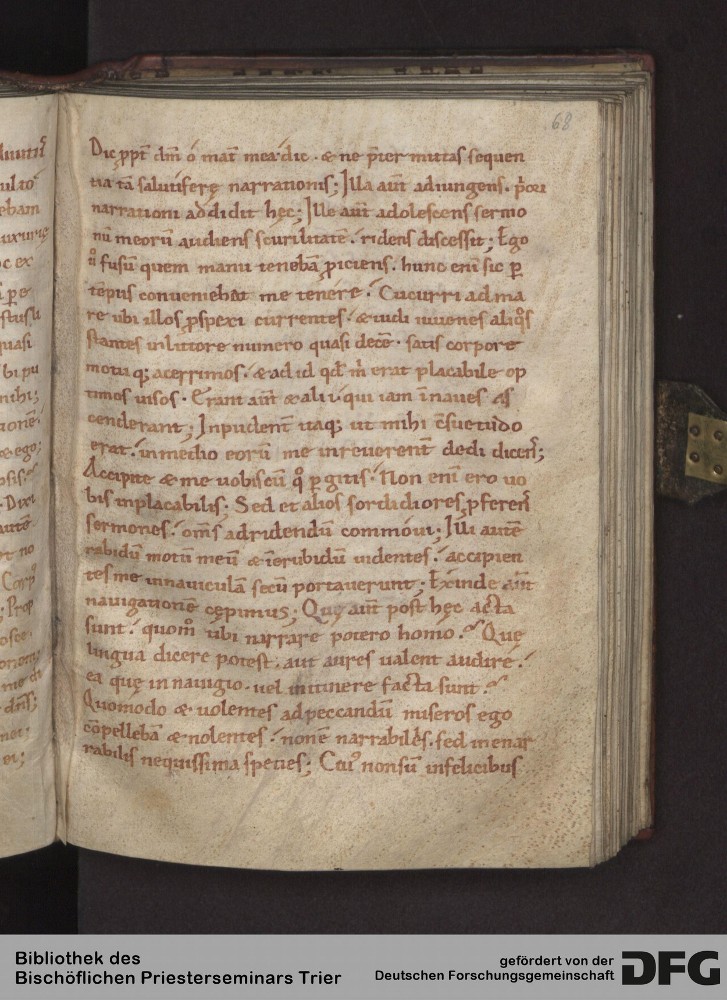 68
Dic ppt̄ dm̄ ó mat̄ mea dic · & ne p̄termittas sequen
tia tā salutiferę narrationis; Illa aut̄ adiungens · p̄ori
narrationi addidit hęc; Ille aut̄ adolescens sermo
nū meorū audiens scurilitatē · ridens discessit; Ego
fusum quem manu tenebā piciens · hunc eni sic p
tēpus conveniebat me tenére · Cucurri ad ma
re ubi illos pspexi currentes · & uidi iuuenes aliq̊s
stantes in littore numero quasi decē · satis corpore
motu q; acerrimos · & ad id qd m̄ erat placabile op
timos uisos · Erant aut̄ & alii qui iam in naues as
cenderant; Inpudent̄ itaq; ut mihi c̄suetudo
erat · in medio eorū me inreuerent̄ dedi dicens;
Accipite & me uobiscū q̊ pgitis · Non eni ero uo
bis inplacabilis; Sed et alios sordidiores pferens
sermones · om̄s ad ridendū commóui; Illi autē
rabidū motum meū & inuidentes · accipien
tes me in nauiculā secū portauerunt; Exinde aut̄
nauigationē cępimus; Quę aut̄ post hęc acta
sunt · quom̊ tibi narrare potero homo · Que
lingua dicere potest · aut aures ualent audire ·
ea quę in nauigio · uel in itinere facta sunt ·
Quomodo & uolentes ad peccandū miseros ego
cōpellebā & nolentes · non ē narrabiles · sed inenar
rabilis nequissima species; Cui' non sū infelicibus
Bibliothek des
Bischöflichen Priesterseminars Trier
gefördert von der
Deutschen Forschungsgemeinschaft
DFG